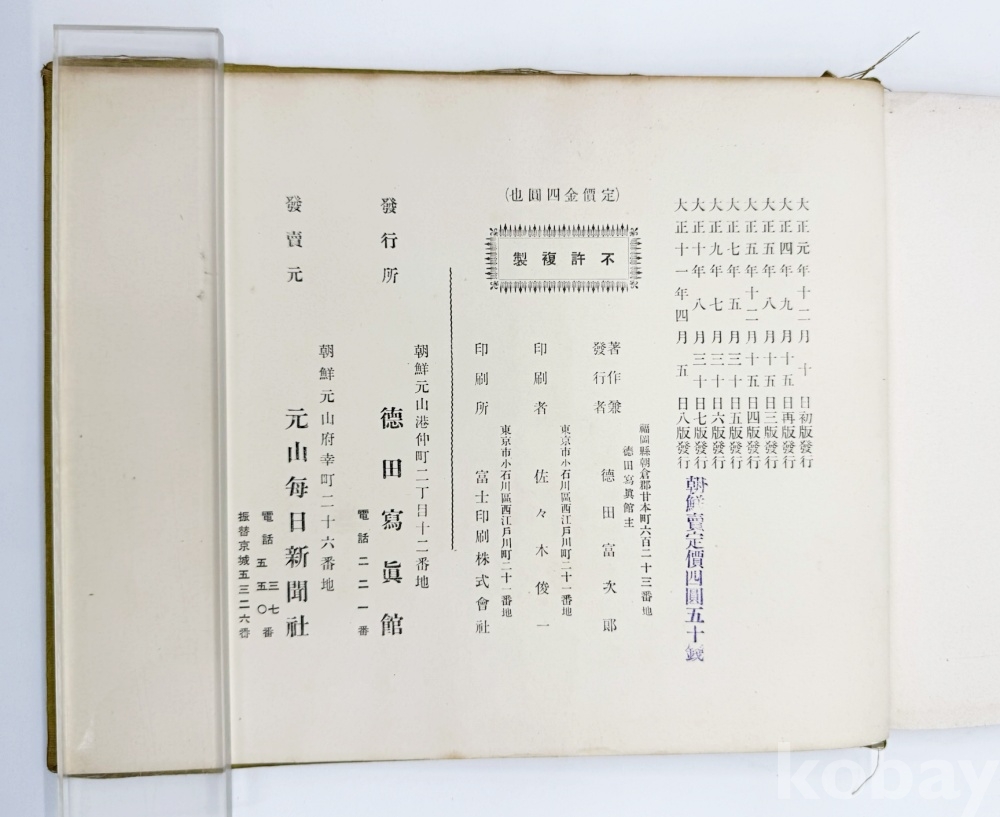 大正元年十二月十日初版發行
大正四年九月十五日再版發行
大正五年八月十五日三版發行
大正五年十二月十五日四版發行
大正七年五月三十日五版發行
大正九年七月三十日六版發行
大正十年八月三十日七版發行
大正十一年四月五日八版發行
朝鮮賣定價四圓五十錢
(定價金四圓也)
不許複製
福岡縣朝倉郡甘木町六百二十三番地
德田寫眞館主
著作兼發行者 德田富次郎
東京市小石川區西江戸川町二十一番地
印刷者 佐々木俊一
東京市小石川區西江戸川町二十一番地
印刷所 富士印刷株式會社
朝鮮元山港仲町二丁目十二番地
發行所 德田寫眞館
電話二二一番
朝鮮元山府幸町二十六番地
發賣元 元山每日新聞社
電話 三七番 五五〇番
振替京城五三二六番
kobay